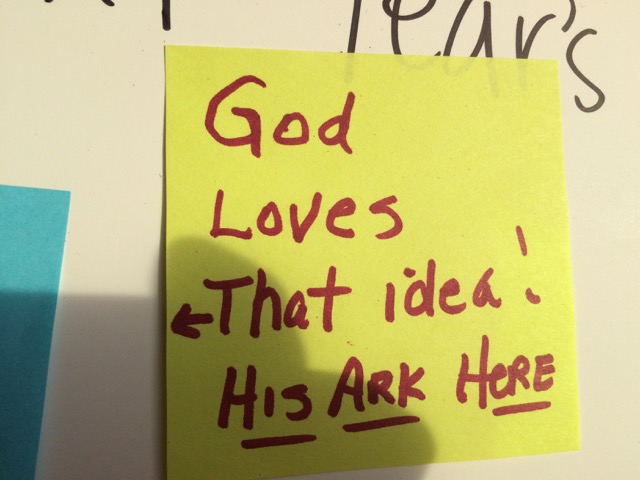 Year's
God
Loves
←That idea!
His ARK HeRE